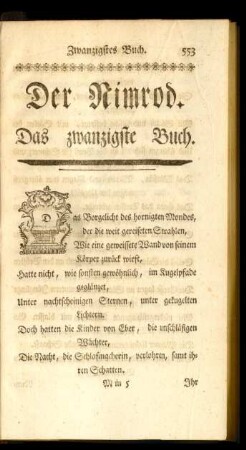 Zwanzigstes Buch. 553
Der Nimrod.
Das zwanzigste Buch.
Das Borgelicht des hornigten Mondes,
der die weit gereiseten Strahlen,
Wie eine geweissete Wand von seinem
Körper zurück wirft,
Hatte nicht, wie sonsten gewöhnlich, im Kugelpfade
geglänzet,
Unter nachtscheinigen Sternen, unter gekugelten
Lichtern.
Doch hatten die Kinder von Eber, die unschläfigen
Wächter,
Die Nacht, die verlohren, samt ih-
ren Schatten.
M m 5 Ihr